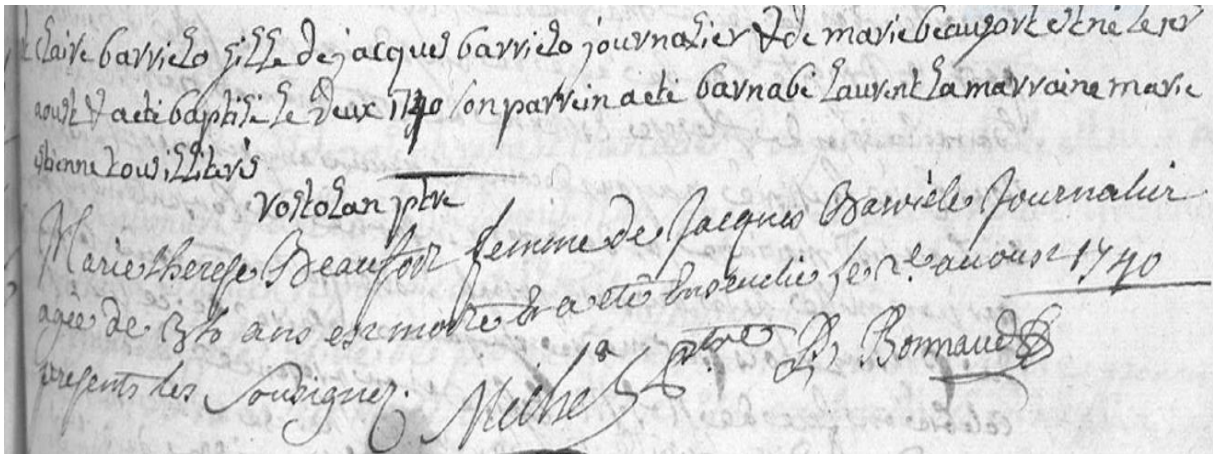 claire barrielo fille de jacques barrielo journalier & de marie beaufort est née le 1er
aoust & a eté baptisée le deux 1740 son parrein a eté barnabé laurent la marraine marie
estienne tous illiterés
voltolan ptre
Marie therese Beaufort femme de Jacques Barriele Journalier
agée de 36 ans est morte & a eté Enseuelie le 2e auoust 1740
presents les soussignez. ptre B. Bonnaud